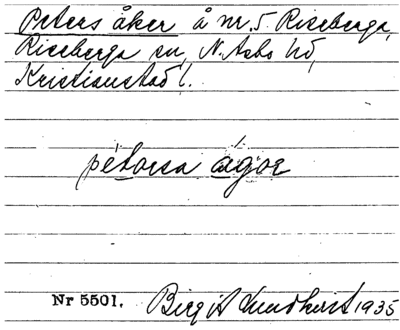 Peters åker å nr. 5 Riseberga,
Riseberga sn, N. Åsbo hd,
Kristianstad l.
pétorsa ágor
Nr 5501. Birgit Lundkvist 1935